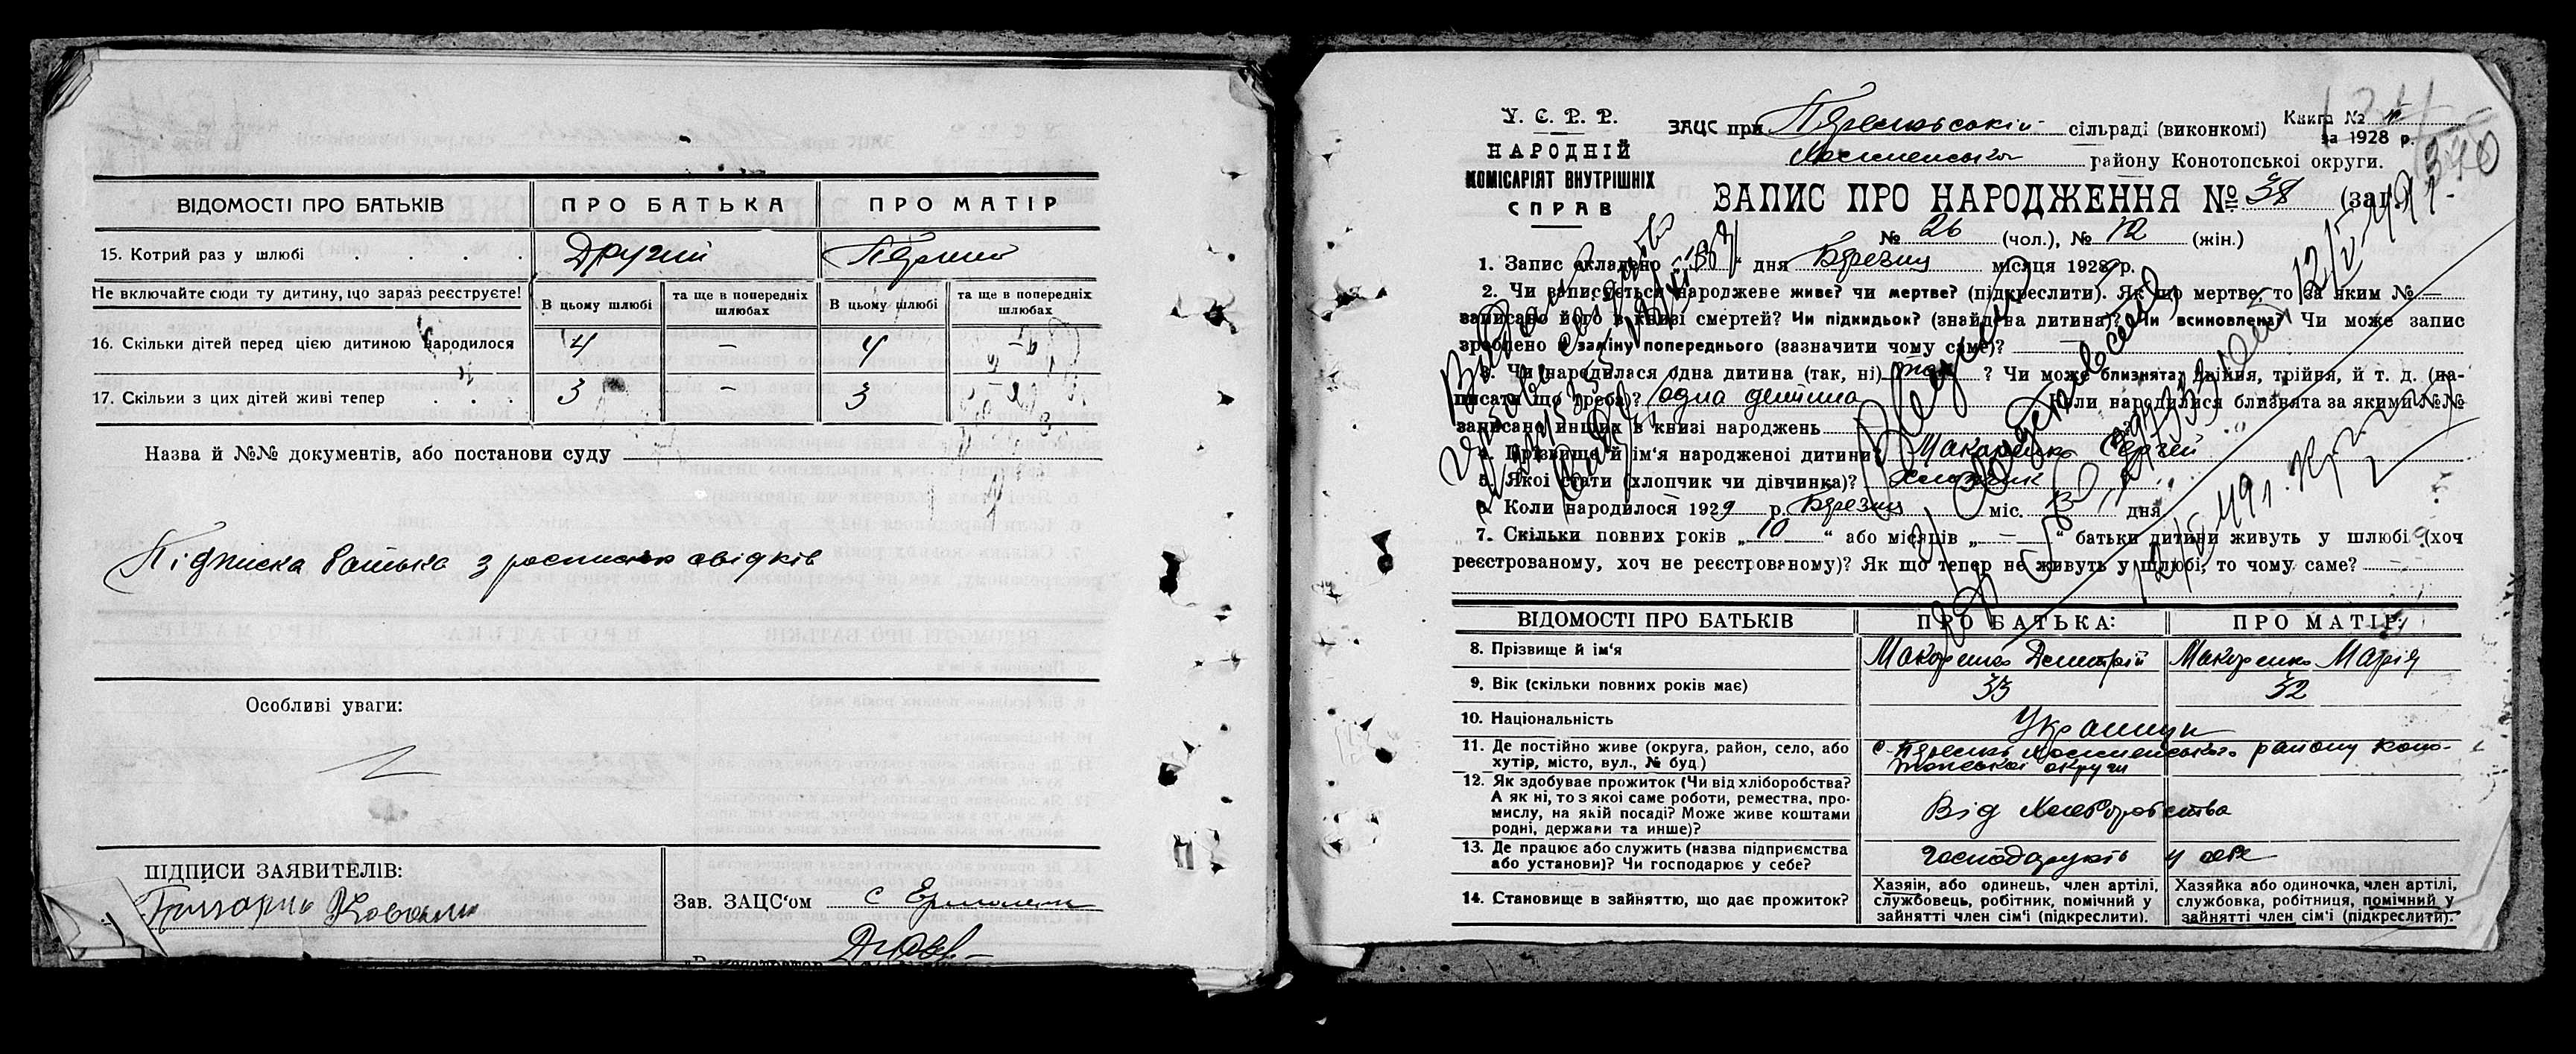 ВІДОМОСТІ ПРО БАТЬКІВ ПРО БАТЬКА ПРО МАТІР
15. Котрий раз у шлюбі Другий Перший
Не включайте сюди ту дитину, що зараз реєструєте! В цьому шлюбі та ще в попередніх шлюбах В цьому шлюбі та ще в попередніх шлюбах
16. Скільки дітей перед цією дитиною народилося 4 – 4 –
17. Скільки з цих дітей живі тепер 3 – 3 –
Назва й №№ документів, або постанови суду
Підписка батька з росписью свідків
Особливі уваги:
ПІДПИСИ ЗАЯВИТЕЛІВ:
Зав. ЗАЦС'ом
У. С. Р. Р.
НАРОДНІЙ
КОМІСАРІЯТ ВНУТРІШНІХ
СПРАВ
ЗАЦС при сільраді (виконкомі)
Книга №
за 1928 р.
району Конотопської округи.
370
ЗАПИС ПРО НАРОДЖЕННЯ № 38 (заг.)
№ 26 (чол.), № 12 (жін.)
1. Запис складено дня Березня місяця 1929 р.
2. Чи записується народжене живе? чи мертве? (підкреслити). Як що мертве, то за яким № –
записано його в книзі смертей? Чи підкидьок? (знайдена дитина)? Чи всиновлена? Чи може запис
зроблено в заміну попереднього (зазначити чому саме)?
3. Чи народилася одна дитина (так, ні) так ? Чи може близнята: двійня, трійня, й т. д. (на-
писати що треба)? одна дитина Коли народилися близнята за якими №№
записано инших в книзі народжень
4. Прізвище й ім'я народженої дитини? Макаренко Сергей
5. Якої стати (хлопчик чи дівчинка)? Хлопчик
6. Коли народилося 1929 р. Березня міс. дня
7. Скільки повних років „10“ або місяців „–“ батьки дитини живуть у шлюбі (хоч
реєстрованому, хоч не реєстрованому)? Як що тепер не живуть у шлюбі, то чому саме?
ВІДОМОСТІ ПРО БАТЬКІВ ПРО БАТЬКА: ПРО МАТІР:
8. Прізвище й ім'я Макаренко Дмитрій Макаренко Марія
9. Вік (скільки повних років має) 33 32
10. Національність Украинци
11. Де постійно живе (округа, район, село, або
хутір, місто, вул., № буд) району Коно-
топської округи
12. Як здобуває прожиток (Чи від хліборобства?
А як ні, то з якої саме роботи, ремества, про-
мислу, на якій посаді? Може живе коштами
родні, держави та инше)? Від Хліборобства
13. Де працює або служить (назва підприємства
або установи)? Чи господарює у себе? господарують у себе
14. Становище в зайняттю, що дає прожиток?
Хазяїн, або одинець, член артілі,
службовець, робітник, помічний у
зайнятті член сім'ї (підкреслити).
Хазяйка або одиночка, член артілі,
службовка, робітниця, помічний у
зайнятті член сім'ї (підкреслити).